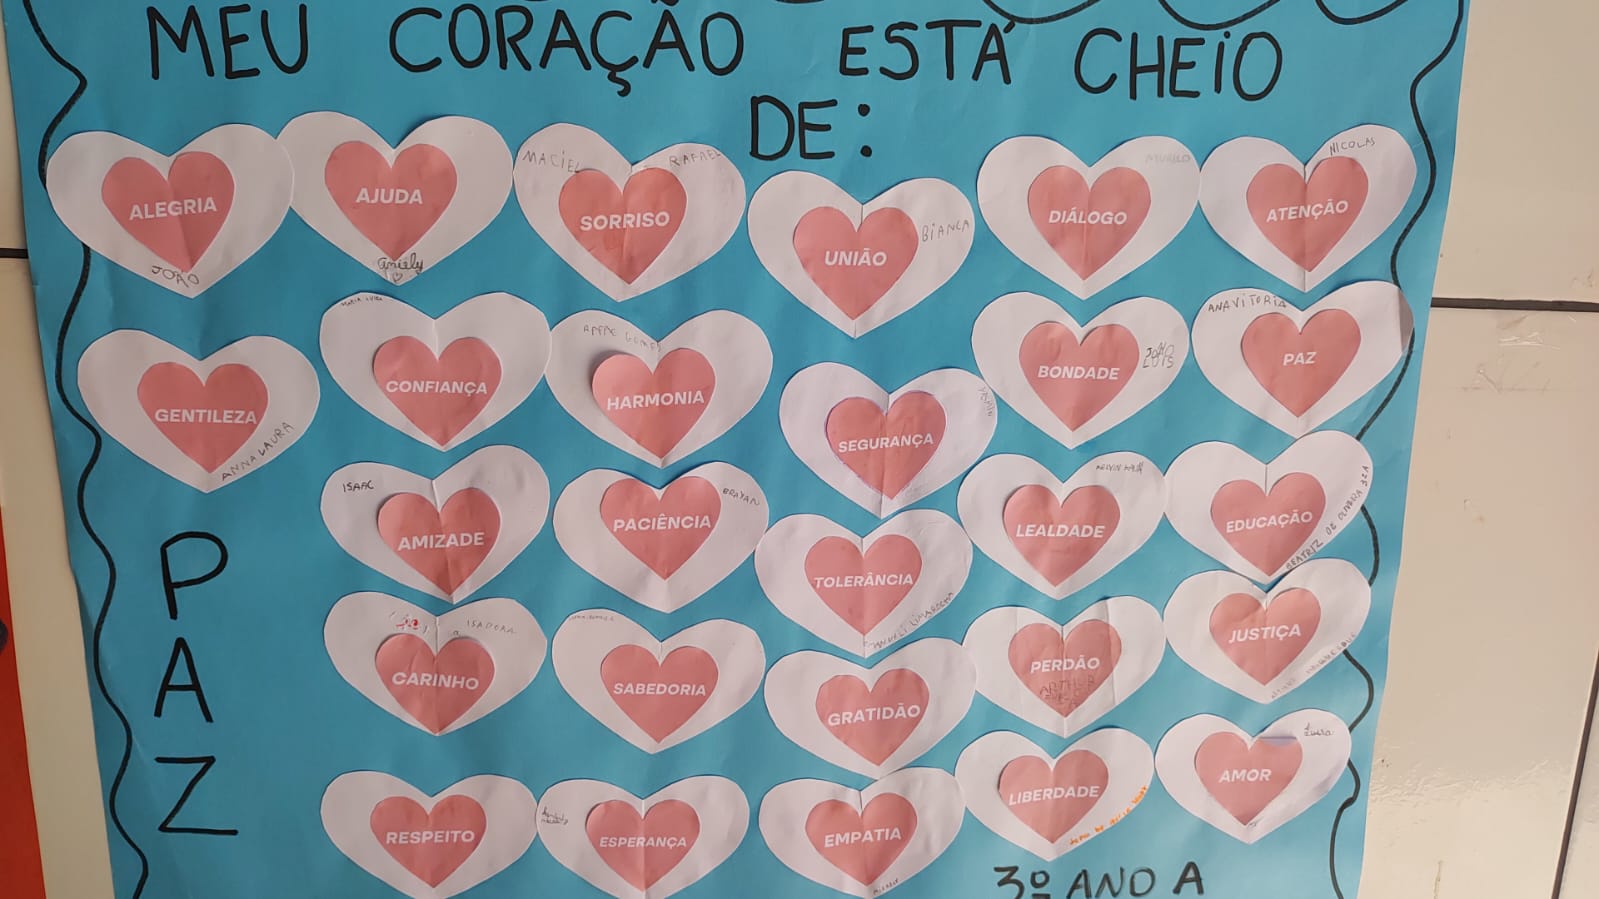 MEU CORAÇÃO ESTÁ CHEIO
DE:
ALEGRIA
JOÃO
AJUDA
Aniely
MACIEL RAFAEL
SORRISO
UNIÃO
BIANCA
MURILO
DIÁLOGO
NICOLAS
ATENÇÃO
GENTILEZA
ANNA LAURA
CONFIANÇA
HARMONIA
SEGURANÇA
BONDADE
JOÃO
LUIS
ANAVITORIA
PAZ
ISAAC
AMIZADE
BRAYAN
PACIÊNCIA
TOLERÂNCIA
LEALDADE
EDUCAÇÃO
BEATRIZ DE OLIVEIRA
ISADORA
CARINHO
SABEDORIA
GRATIDÃO
PERDÃO
ARTHUR
JUSTIÇA
RESPEITO
ESPERANÇA
EMPATIA
LIBERDADE
AMOR
PAZ
3º ANO A